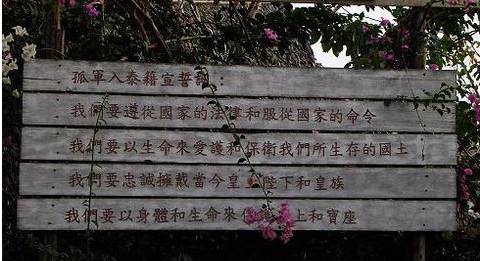 孤軍入泰籍宣誓詞：
我們要遵從國家的法律和服從國家的命令
我們要以生命來愛護和保衛我們所生存的國土
我們要忠誠擁戴當今皇 陛下和皇族
我們要以身體和生命來 上和寶座